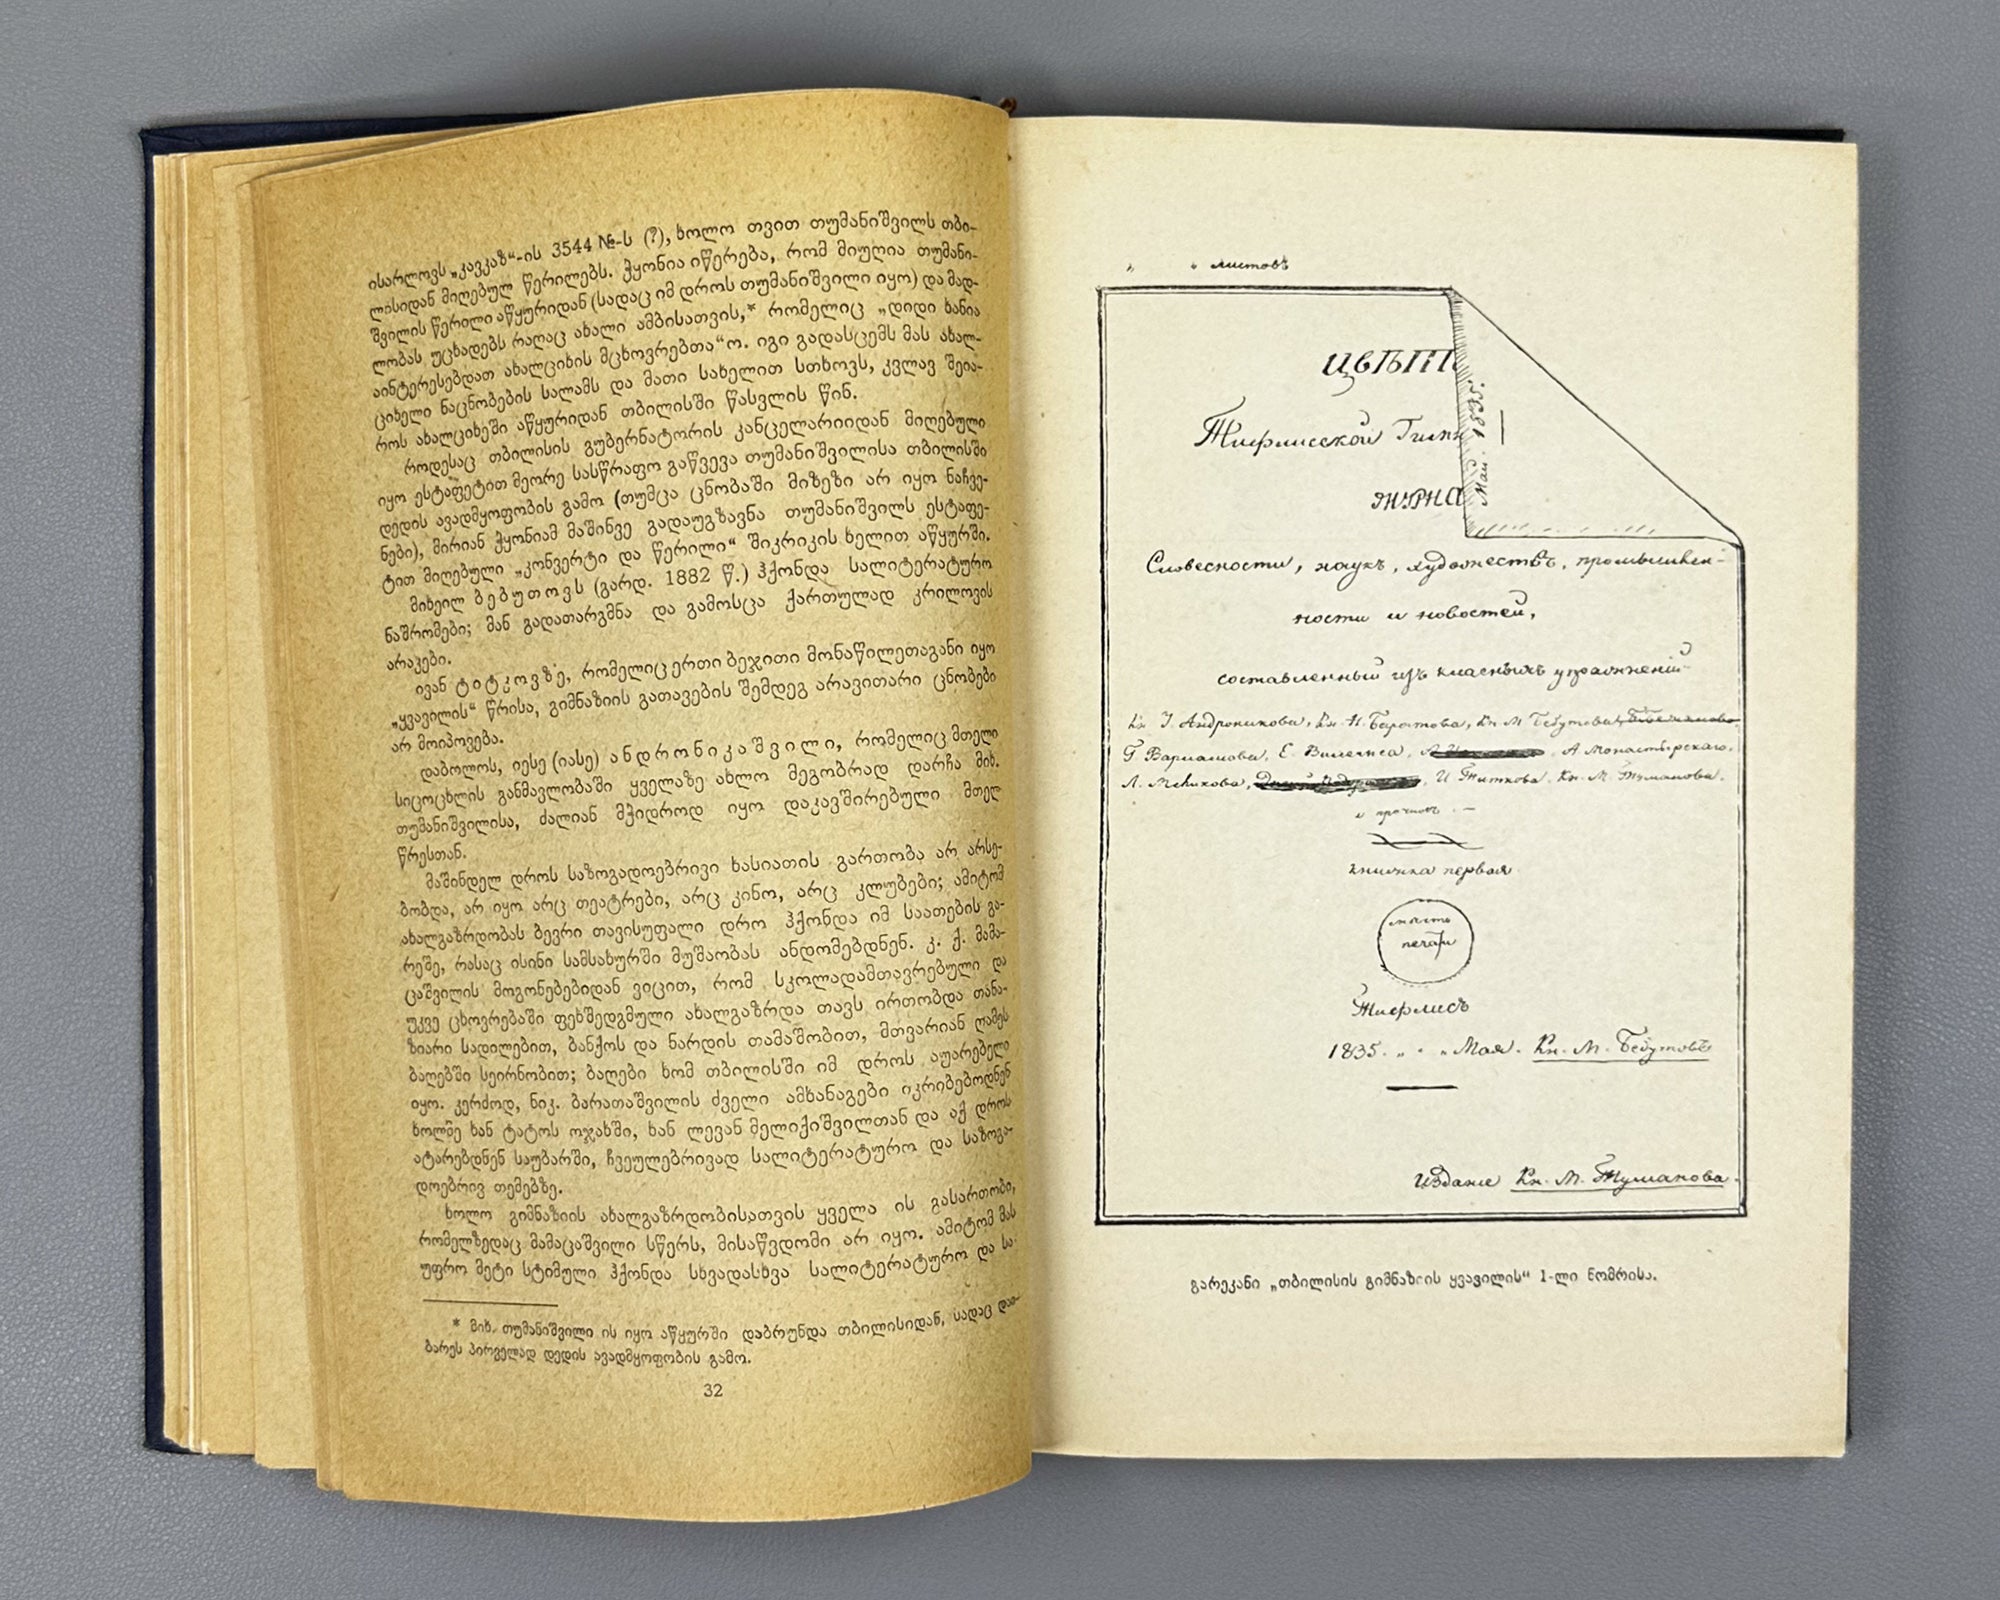 ისარლოვს „კავკაზ“-ის 3544 №-ს (?), ხოლო თვით თუმანიშვილს თბი-
ლისიდან მიღებულ წერილებს. ჭყონია იწერება, რომ მიუღია თუმანი-
შვილის წერილი აწყურიდან (სადაც იმ დროს თუმანიშვილი იყო) და მად-
ლობას უცხადებს რაღაც ახალი ამბისათვის,* რომელიც „დიდი ხანია
აინტერესებდათ ახალციხის მცხოვრებთა“ო. იგი გადასცემს მას ახალ-
ციხელი ნაცნობების სალამს და მათი სახელით სთხოვს, კვლავ შეია-
როს ახალციხეში აწყურიდან თბილისში წასვლის წინ.
როდესაც თბილისის გუბერნატორის კანცელარიიდან მიღებული
იყო ესტაფეტით მეორე სასწრაფო გაწვევა თუმანიშვილისა თბილისში
დედის ავადმყოფობის გამო (თუმცა ცნობაში მიზეზი არ იყო ნაჩვე-
ნები), მირიან ჭყონიამ მაშინვე გადაუგზავნა თუმანიშვილს ესტაფე-
ტით მიღებული „კონვერტი და წერილი“ შიკრიკის ხელით აწყურში.
მიხეილ ბებუთოვს (გარდ. 1882 წ.) ჰქონდა სალიტერატურო
ნაშრომები; მან გადათარგმნა და გამოსცა ქართულად კრილოვის
არაკები.
ივან ტიტკოვზე, რომელიც ერთი ბეჯითი მონაწილეთაგანი იყო
„ყვავილის“ წრისა, გიმნაზიის გათავების შემდეგ არავითარი ცნობები
არ მოიპოვება.
დაბოლოს, იესე (იასე) ანდრონიკაშვილი, რომელიც მთელი
სიცოცხლის განმავლობაში ყველაზე ახლო მეგობრად დარჩა მიხ.
თუმანიშვილისა, ძალიან მჭიდროდ იყო დაკავშირებული მთელ
წრესთან.
მაშინდელ დროს საზოგადოებრივი ხასიათის გართობა არ არსე-
ბობდა, არ იყო არც თეატრები, არც კინო, არც კლუბები; ამიტომ
ახალგაზრდობას ბევრი თავისუფალი დრო ჰქონდა იმ საათების გა-
რეშე, რასაც ისინი სამსახურში მუშაობას ანდომებდნენ. კ. ქ. მამა-
ცაშვილის მოგონებებიდან ვიცით, რომ სკოლადამთავრებული და
უკვე ცხოვრებაში ფეხშედგმული ახალგაზრდა თავს ირთობდა თანა-
ზიარი სადილებით, ბანქოს და ნარდის თამაშობით, მთვარიან ღამეს
ბაღებში სეირნობით; ბაღები ხომ თბილისში იმ დროს აუარებელი
იყო. კერძოდ, ნიკ. ბარათაშვილის ძველი ამხანაგები იკრიბებოდნენ
ხოლმე ხან ტატოს ოჯახში, ხან ლევან მელიქიშვილთან და აქ დროს
ატარებდნენ საუბარში, ჩვეულებრივად სალიტერატურო და საზოგა-
დოებრივ თემებზე.
ხოლო გიმნაზიის ახალგაზრდობისათვის ყველა ის გასართობი,
რომელზედაც მამაცაშვილი სწერს, მისაწვდომი არ იყო. ამიტომ მას
უფრო მეტი სტიმული ჰქონდა სხვადასხვა სალიტერატურო და სა-
* მიხ. თუმანიშვილი ის იყო აწყურში დაბრუნდა თბილისიდან, სადაც დაი-
ბარეს პირველად დედის ავადმყოფობის გამო.
32
„ „ листовъ
Цвѣт
Май. 1835.
Тифлисской Гимн
журна
Словесности, наукъ, художествъ, промышлен-
ности и новостей,
составленный изъ класныхъ упражненій
Кн. І. Андроникова, Кн. Н. Баратова, Кн. М. Бебутова,
Г. Варламова, Е. Вилениса, А. Монастырскаго,
Л. Меликова, И. Титкова, Кн. М. Туманова,
и прочихъ. —
книжка первая
мѣсто
печати
Тифлисъ
1835. „ „ Мая. Кн. М. Бебутовъ
Изданіе Кн. М. Туманова.
გარეკანი „თბილისის გიმნაზიის ყვავილის“ 1-ლი ნომრისა.